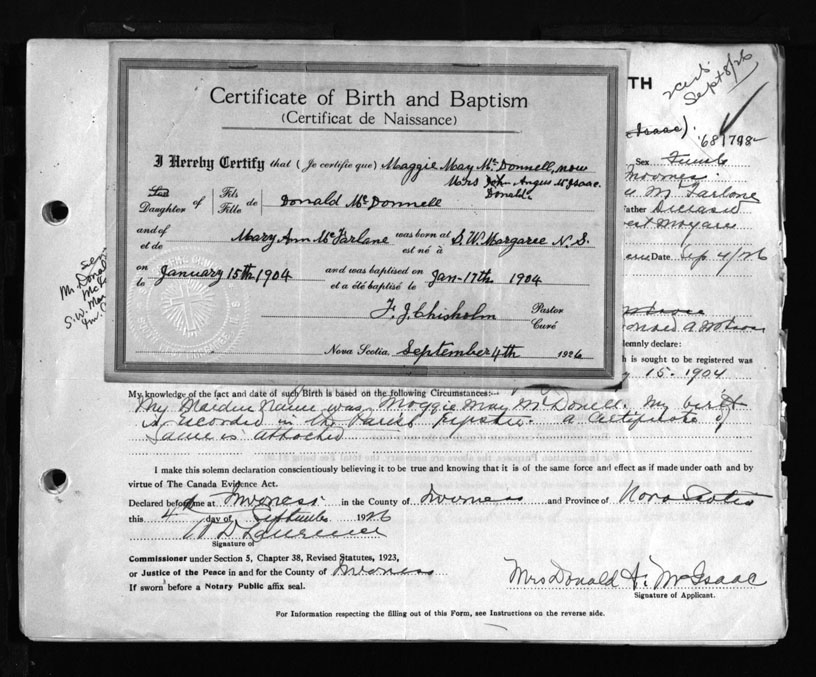 Certificate of Birth and Baptism
(Certificat de Naissance)
I Hereby Certify that (Je certifie que) Maggie May McDonnell, now
Mrs John Angus McIsaac.
Donald
Son
Daughter of Fils
Fille de Donald McDonnell
and of
et de Mary Ann McFarlane was born at
est né à S.W. Margaree N.S.
on
le January 15th 1904 and was baptised on
et a été baptisé le Jan-17th 1904
F.J. Chisholm Pastor
Curé
Nova Scotia, September 4th 1926
TH
Sept 8/26
Isaac).
681798
Sex Female
McFarlane
Father Deceased
Date Sep 4/26
lemnly declare:
h is sought to be registered was
15. 1904
S.W.
My knowledge of the fact and date of such Birth is based on the following Circumstances:—
My Maiden Name was Maggie May McDonell. My birth
is recorded in the Parish Register. a Certificate of
same is attached
I make this solemn declaration conscientiously believing it to be true and knowing that it is of the same force and effect as if made under oath and by
virtue of The Canada Evidence Act.
Declared before me at Inverness in the County of Inverness and Province of Nova Scotia
this 4th day of September 1926
W D Lawrence
Signature of
Commissioner under Section 5, Chapter 38, Revised Statutes, 1923,
or Justice of the Peace in and for the County of Inverness
If sworn before a Notary Public affix seal.
Mrs Donald A. McIsaac
Signature of Applicant.
For Information respecting the filling out of this Form, see Instructions on the reverse side.